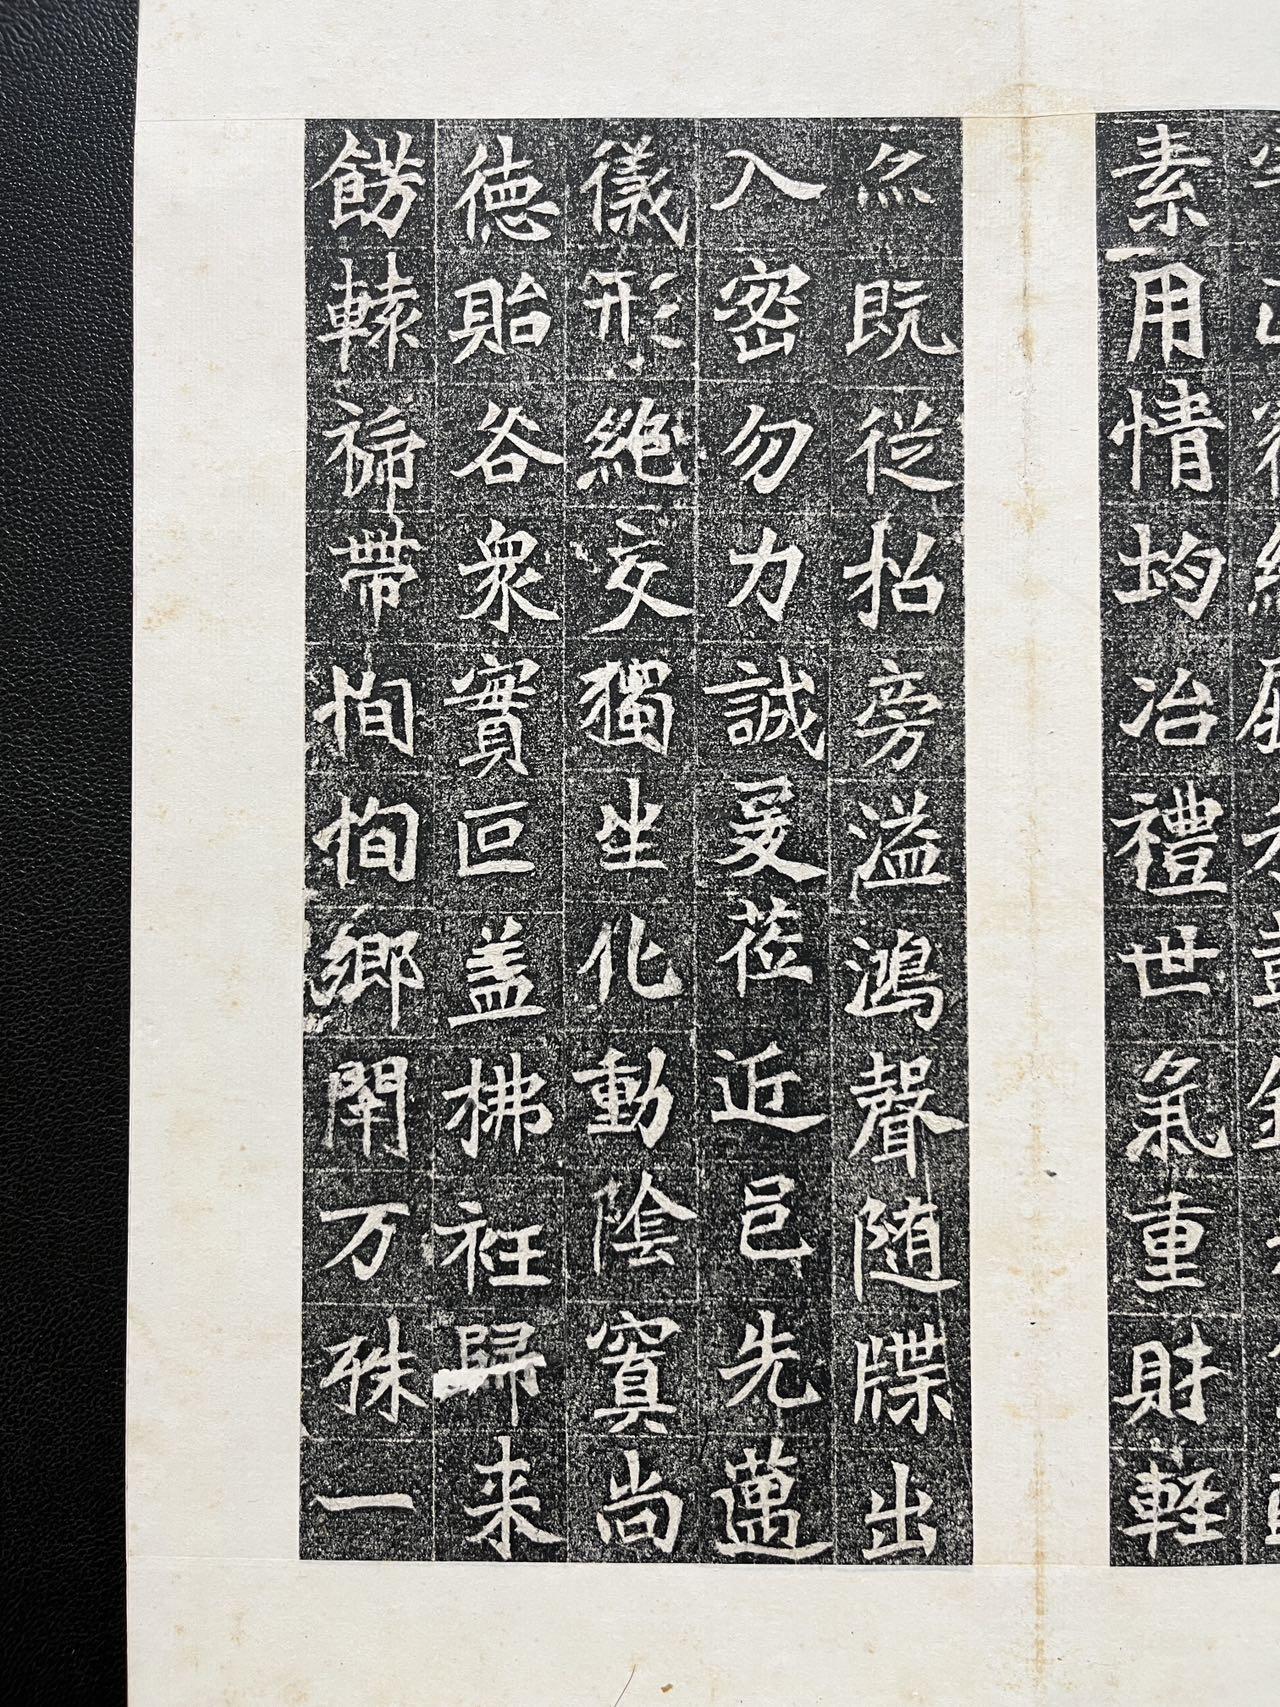 素用情均冶禮世氣重財軽
尒既從招旁溢鴻聲随牒出
入密勿力誠爰莅近邑先邁
儀形絶交獨坐化動陰窴尚
德貽谷衆實叵盖拂衽歸来
餝轅褅帶恂恂鄉閈万殊一